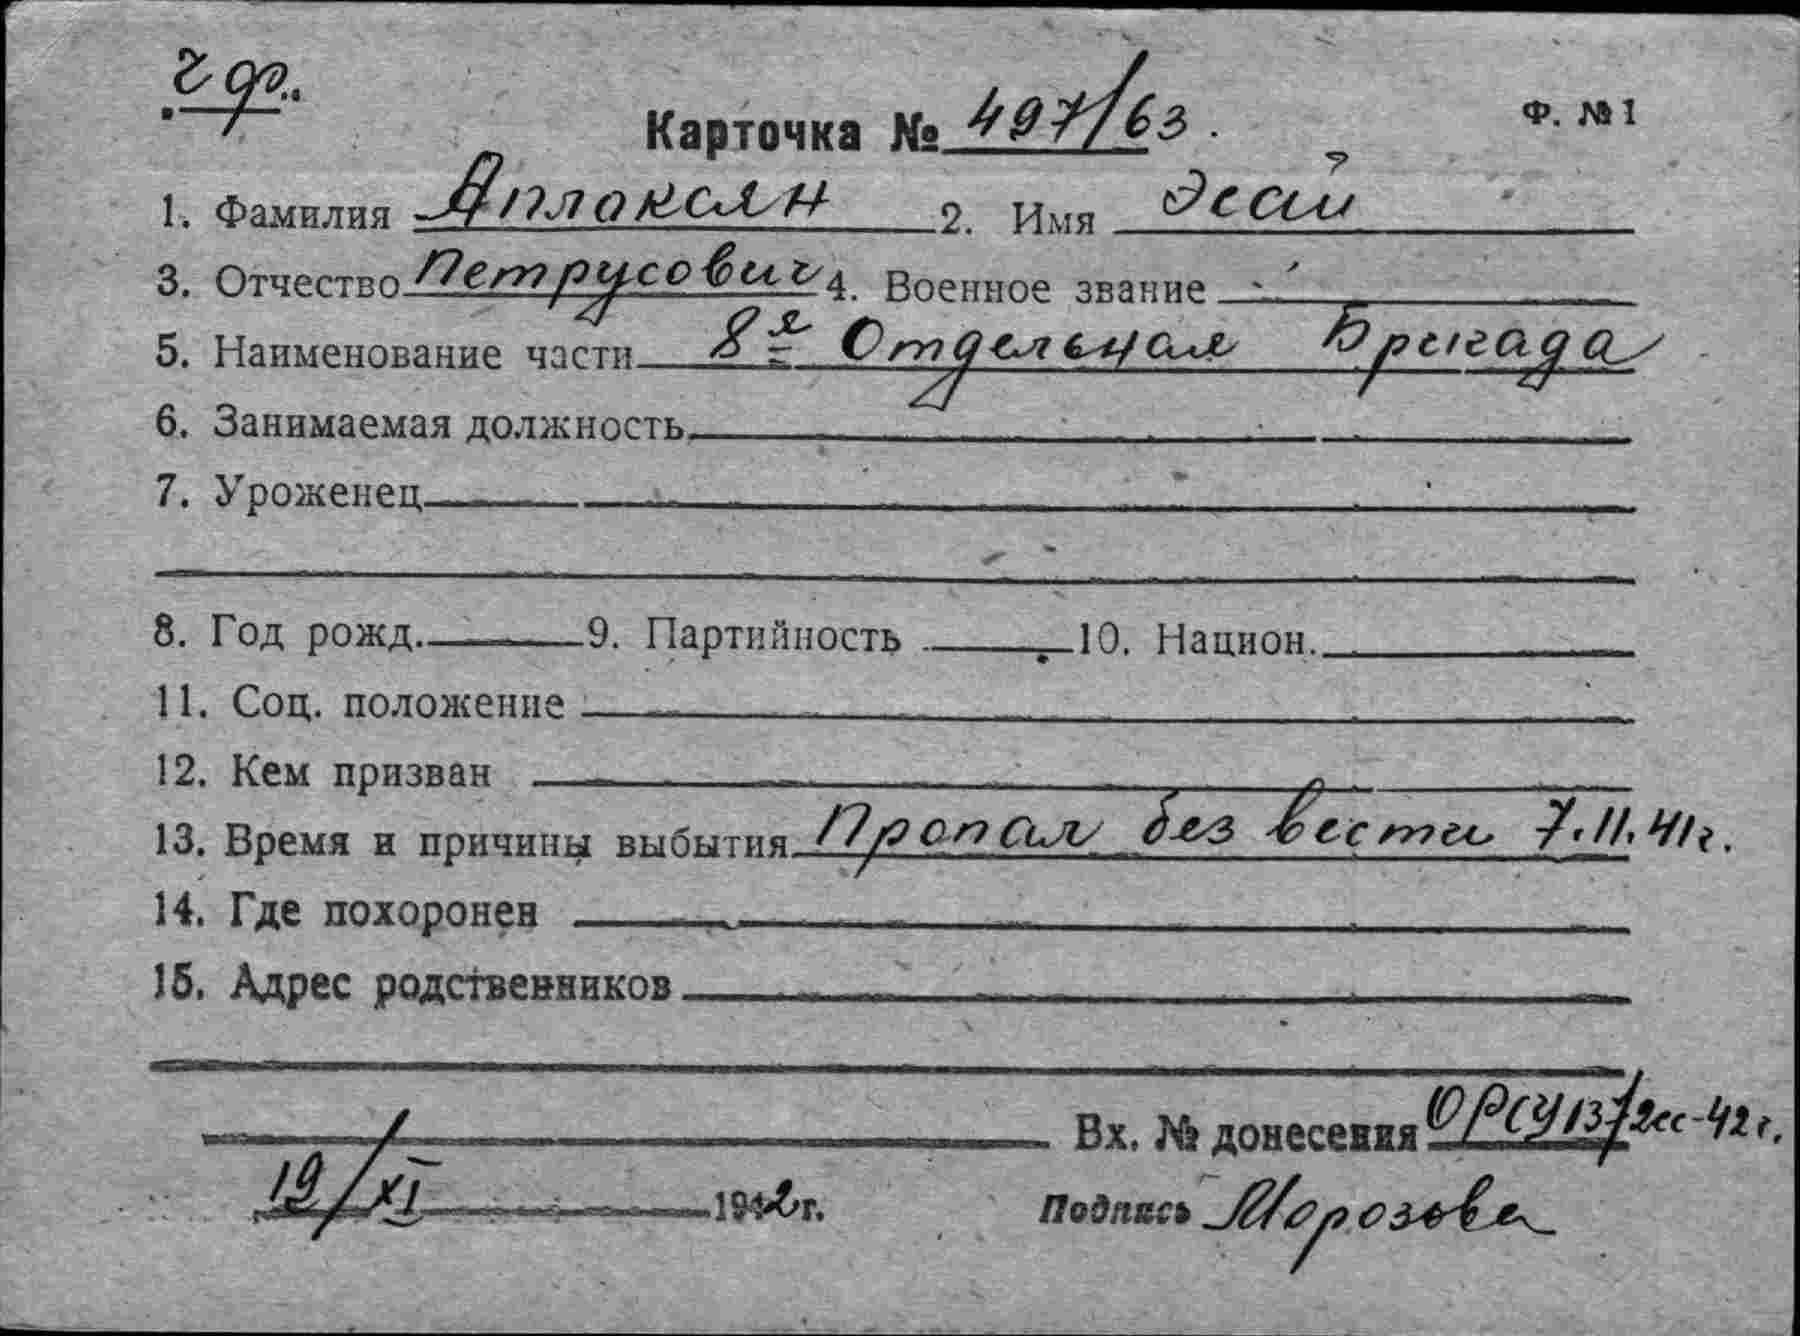 ч ф..
Карточка № 497/63. Ф. №1
1. Фамилия Аплаксян 2. Имя Эсай
3. Отчество Петрусович 4. Военное звание
5. Наименование части 8я Отдельная Бригада
6. Занимаемая должность
7. Уроженец
8. Год рожд. 9. Партийность 10. Национ.
11. Соц. положение
12. Кем призван
13. Время и причины выбытия Пропал без вести 7.11.41г.
14. Где похоронен
15. Адрес родственников
Вх. № донесения 42г.
19/XI 1942г. Подпись Морозова